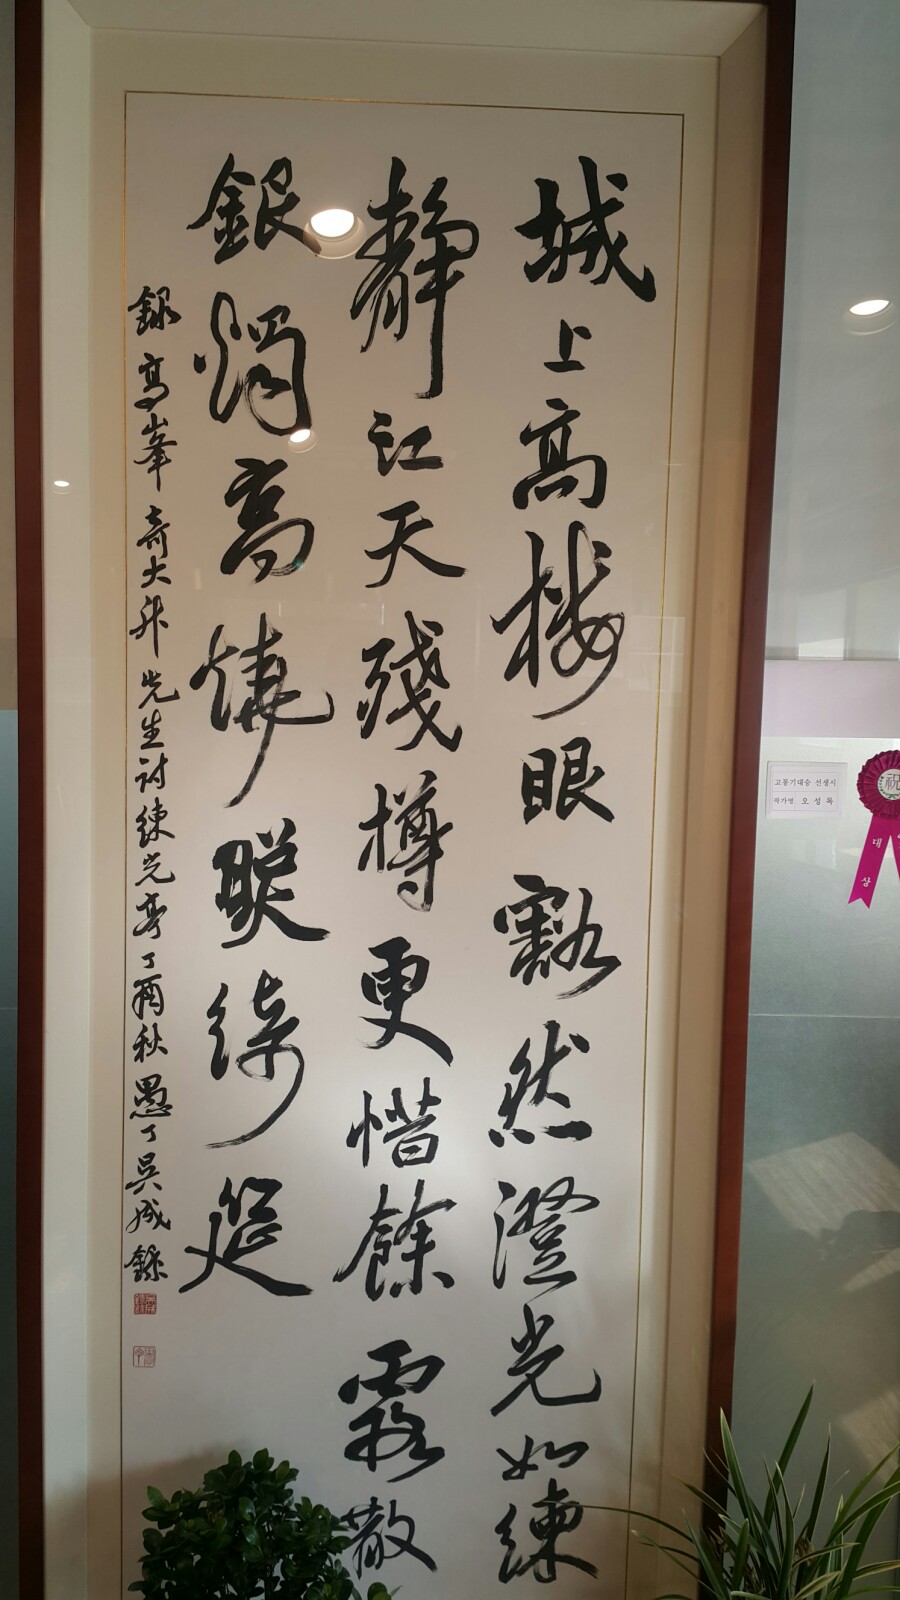 城上高楼眼豁然澄光如練
靜江天殘樽更惜餘霞散
銀燭高燒聚綺筵
錄高峯奇大升先生討練光亭丁酉秋愚丁吳成錄
고봉기대승 선생시
작가명 오성록
祝
대상